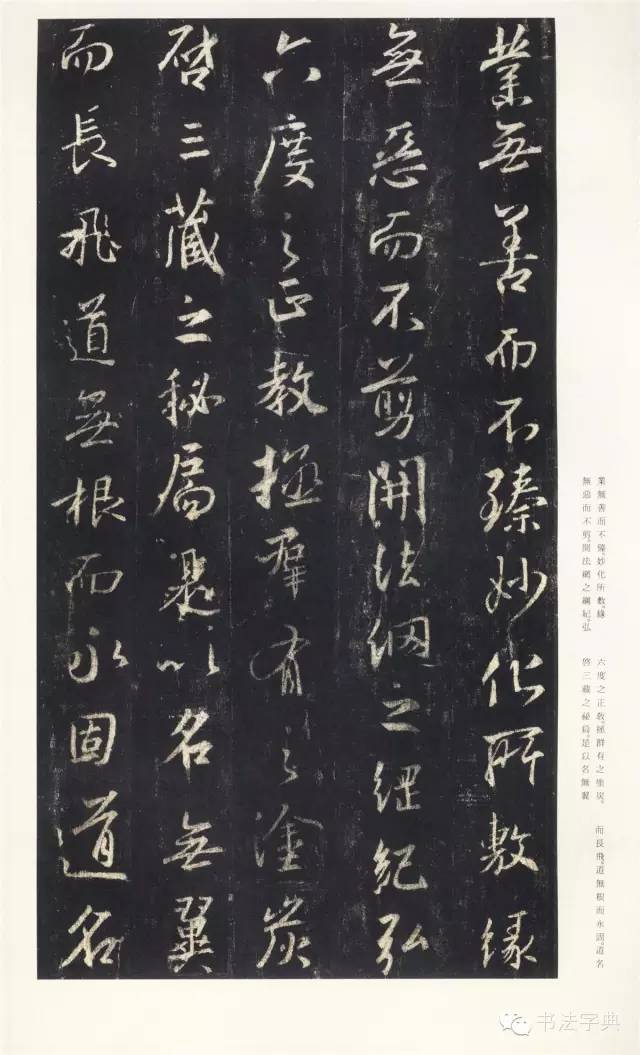 業無善而不臻妙化所敷緣
無惡而不剪開法網之綱紀弘
六度之正教拯羣有之塗炭
啓三藏之秘扃是以名無翼
而長飛道無根而永固道名
業無善而不臻。妙化所敷。緣
無惡而不剪。開法網之綱紀。弘
六度之正教。拯群有之塗炭。
啓三藏之秘扃。是以名無翼
而長飛。道無根而永固。道名
书法字典